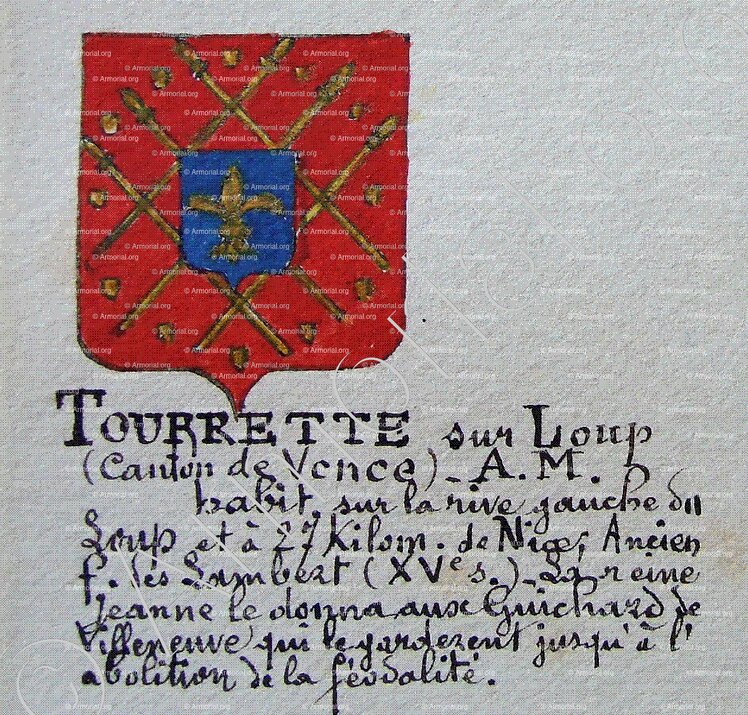 TOURRETTE sur Loup
(Canton de Vence)_ A. M.
habit. sur la rive gauche du
Loup et à 27 Kilom. de Nice; Ancien
f. des Lambert (XVe s.)_ La reine
Jeanne le donna aux Guichard de
Villeneuve qui le garderent jusqu'à l'
abolition de la féodalité.